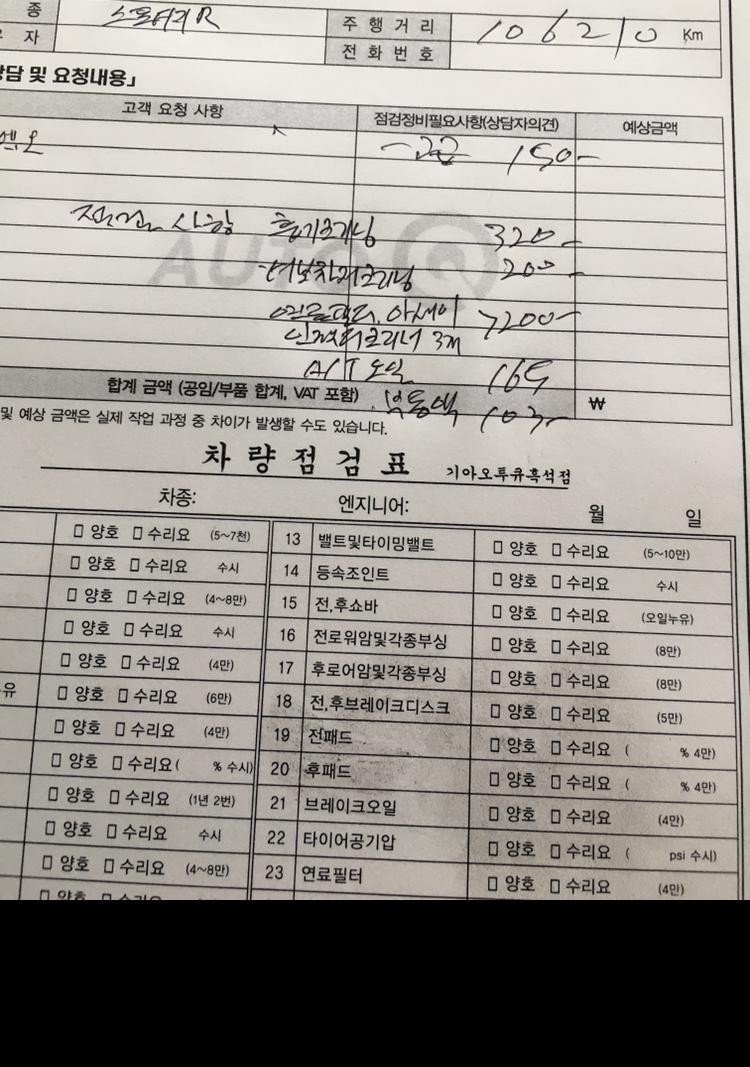 종 스포티지R 주 행 거 리 106210 Km
자 전 화 번 호
담 및 요청내용」
고객 요청 사항 점검정비필요사항(상담자의견) 예상금액
엔오 고급 150-
점검 사항 흡기크리닝 320-
AUTO Q
터보차져크리닝 200-
연료필터, 아세이 200-
인젝터크리너 3개
A/T 오일 165
합계 금액 (공임/부품 합계, VAT 포함) 부동액 103- ₩
및 예상 금액은 실제 작업 과정 중 차이가 발생할 수도 있습니다.
차 량 점 검 표 기아오투유흑석점
차종: 엔지니어: 월 일
양호 수리요 (5~7천) 13 밸트및타이밍밸트 양호 수리요 (5~10만)
양호 수리요 수시 14 등속조인트 양호 수리요 수시
양호 수리요 (4~8만) 15 전,후쇼바 양호 수리요 (오일누유)
양호 수리요 수시 16 전로워암및각종부싱 양호 수리요 (8만)
양호 수리요 (4만) 17 후로어암및각종부싱 양호 수리요 (8만)
유 양호 수리요 (6만) 18 전,후브레이크디스크 양호 수리요 (5만)
양호 수리요 (4만) 19 전패드 양호 수리요 ( % 4만)
양호 수리요 ( % 수시) 20 후패드 양호 수리요 ( % 4만)
양호 수리요 (1년 2번) 21 브레이크오일 양호 수리요 (4만)
양호 수리요 수시 22 타이어공기압 양호 수리요 ( psi 수시)
양호 수리요 (4~8만) 23 연료필터 양호 수리요 (4만)